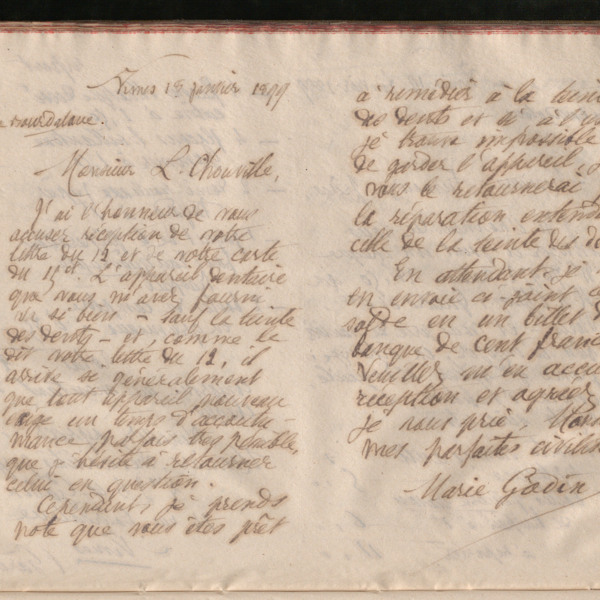 janvier 1899
Monsieur L. Chouville,
J'ai l'honneur de vous
accuser réception de votre
lettre du 12 et de votre carte
du 15 ct. L'appareil dentaire
que vous m'avez fourni
si bien – sauf la teinte
des dents – et, comme le
dit votre lettre du 12, il
arrive si généralement
que tout appareil nouveau
exige un temps d'accoutu-
mance parfois très pénible,
que j'hésite à retourner
celui en question.
Cependant, je prends
note que vous êtes prêt
à remédier à la tein
des dents et si à l'u
je trouve impossible
de garder l'appareil,
vous le retournerai
la réparation entend
celle de la teinte des d
En attendant, je
en envoie ci-joint
solde en un billet d
banque de cent franc
Veuillez m'en accu
réception et agréer
je vous prie, Mons
mes parfaites civilit
Marie Godin